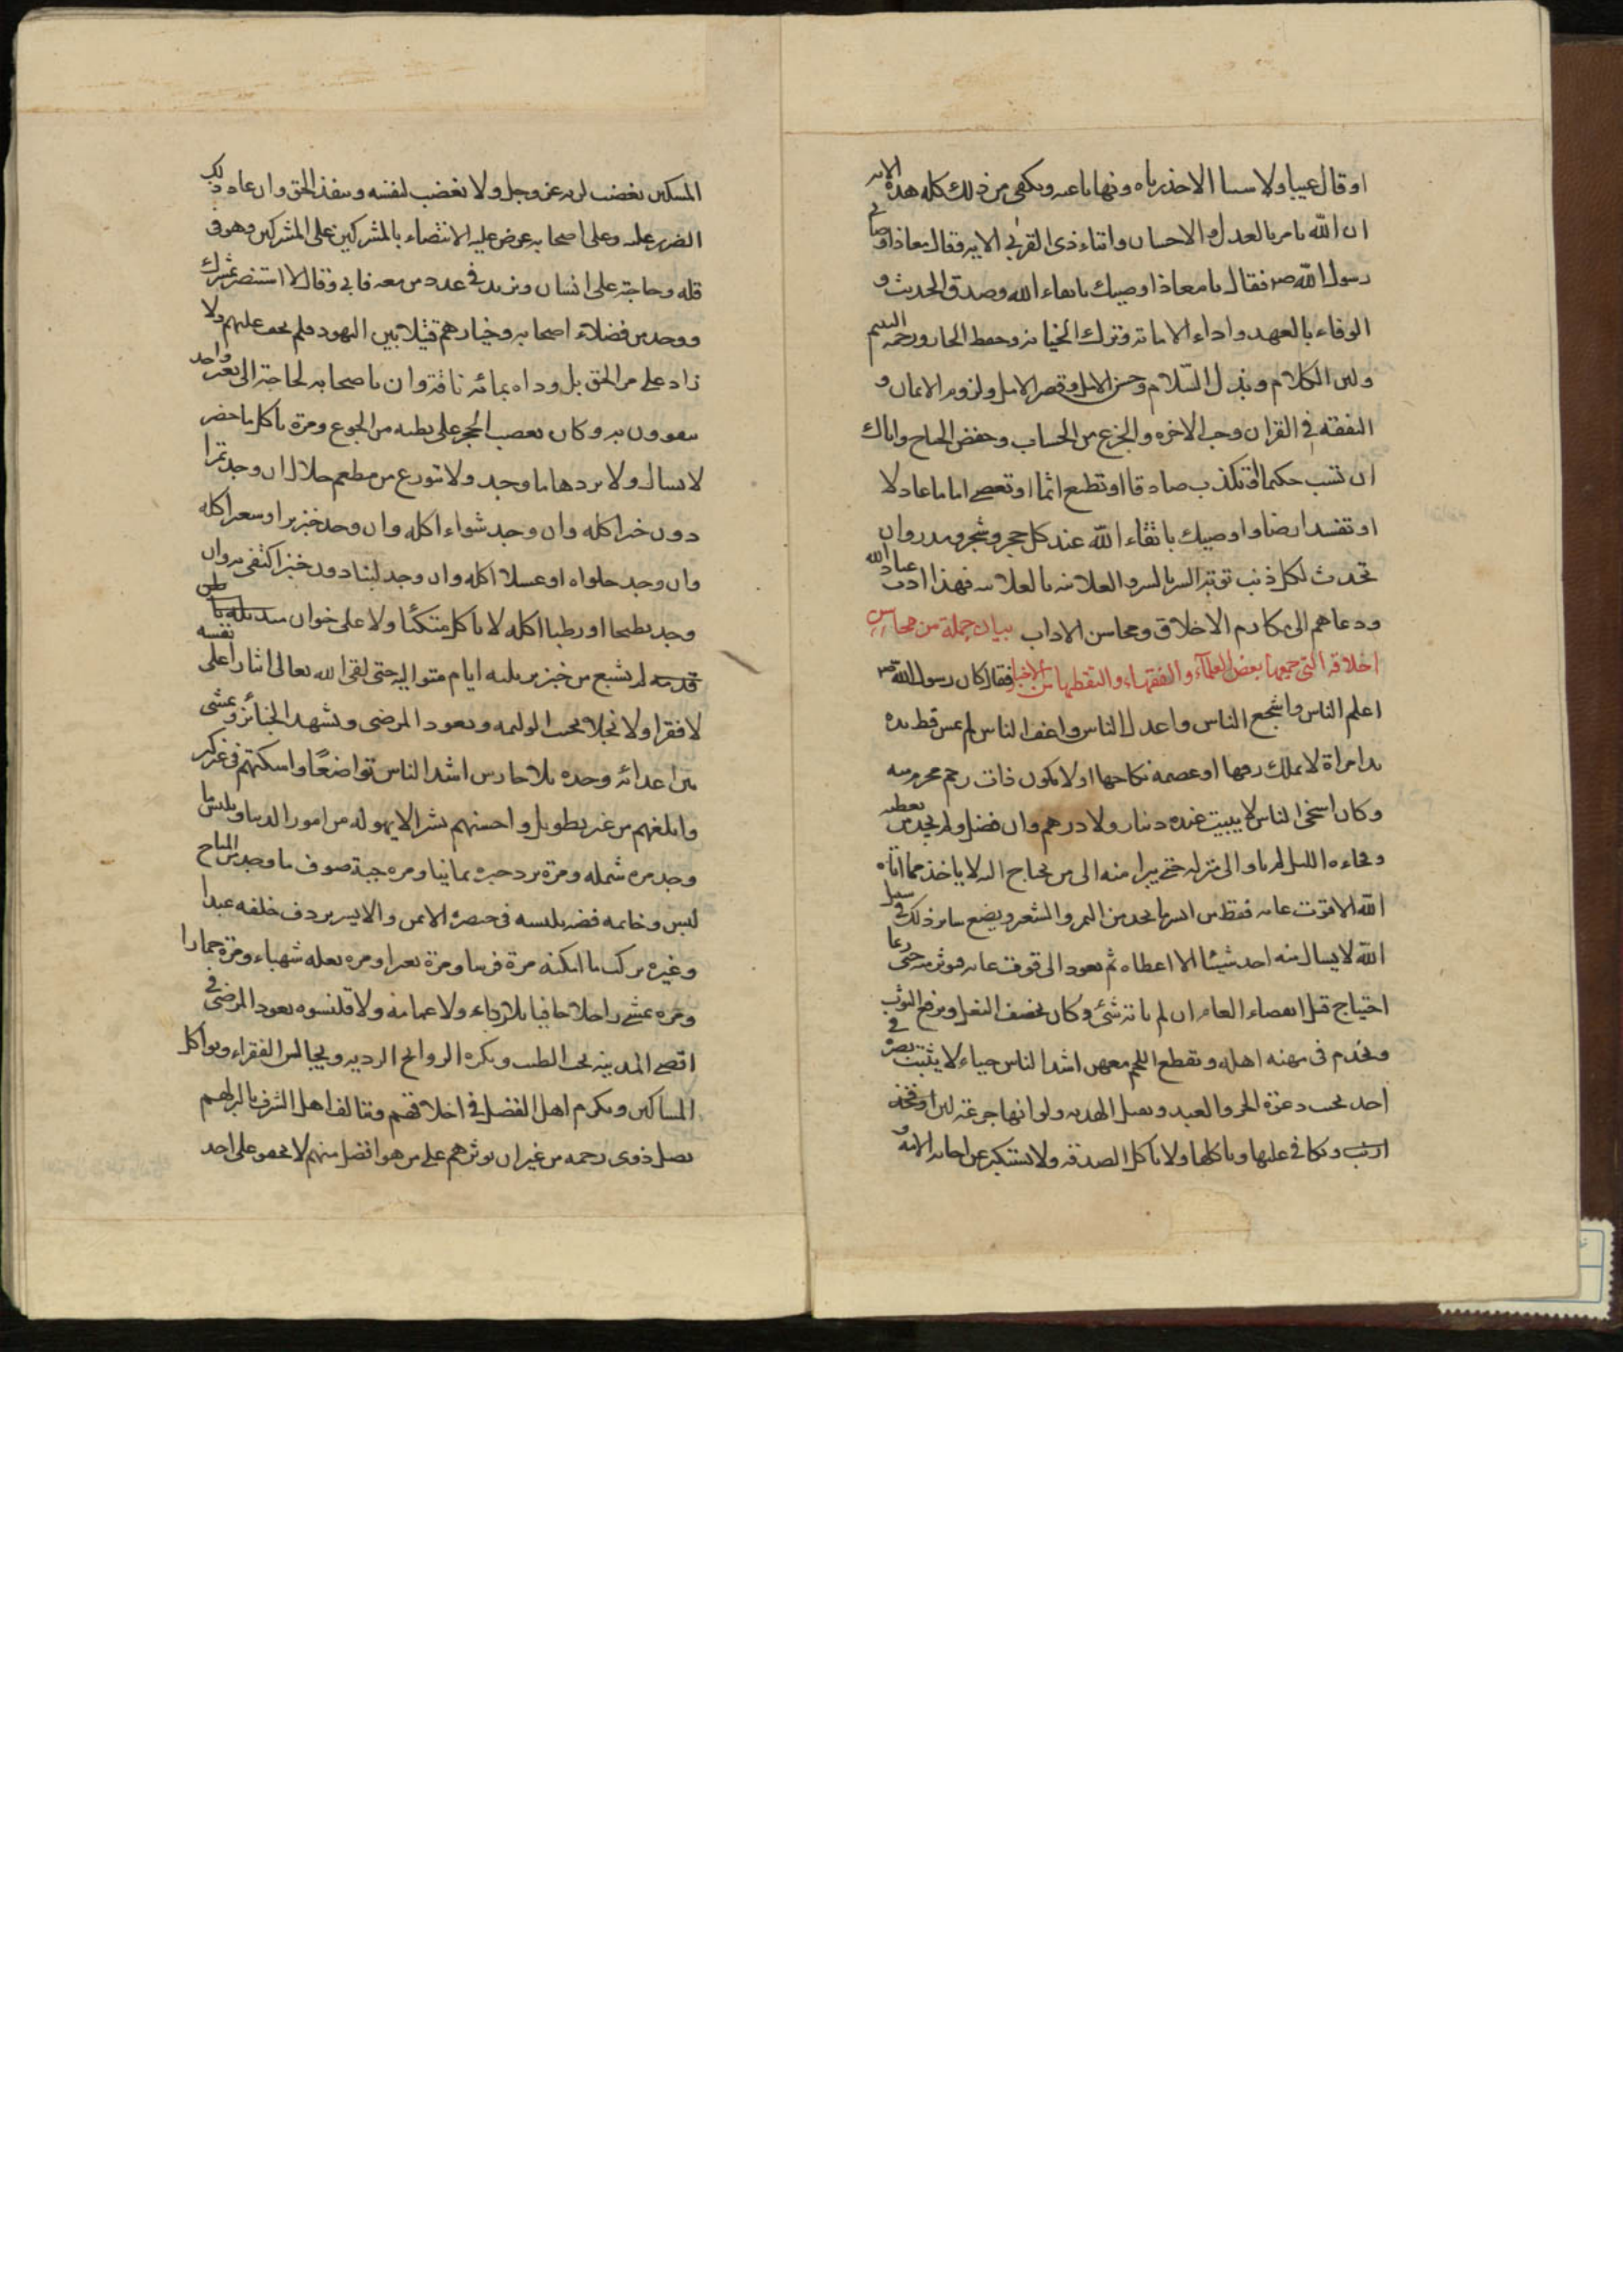 او قال عيبا ولا سيا الا حذرناه ونهانا عنه ويكفي من ذلك كله هذه الايه
ان الله يامر بالعدل والاحسان وايتاء ذى القربى الايه وقال معاذ اوصانى
رسول الله صم فقال يا معاذ اوصيك باتقاء الله وصدق الحديث و
الوفاء بالعهد واداء الامانة وترك الخيانة وحفظ الجار ورحمة اليتيم
ولين الكلام وبذل السلام وحسن العمل وقصر الامل ولزوم الايمان و
التفقه في القران وحب الاخره والجزع من الحساب وخفض الجناح واياك
ان تسب حكيما او تكذب صادقا او تطيع اثما او تعصى اماما عادلا
او تفسد ارضا واوصيك باتقاء الله عند كل حجر وشجر ومدر وان
تحدث لكل ذنب توبة السر بالسر والعلانيه بالعلانيه فهذا ادب عباد الله
ودعاهم الى مكارم الاخلاق ومحاسن الاداب بيان جملة من محاسن
اخلاقه التي جمعها بعض العلماء والفقهاء والتقطها من الاخبار فقال كان رسول الله صم
اعلم الناس واشجع الناس واعدل الناس واعف الناس لم تمس قط يده
يد امراة لا يملك رقها او عصمه نكاحها او لا تكون ذات رحم محرم منه
وكان اسخى الناس لا يبيت عنده دينار ولا درهم وان فضل ولم يجد من يعطيه
وفجاءه الليل لم ياو الى منزله حتى يبرا منه الى من يحتاج اليه لا ياخذ مما اتاه
الله الا قوت عامه فقط من ايسر ما يجد من التمر والشعير ويضع ساير ذلك في سبيل
الله لا يسال منه احد شيئا الا اعطاه ثم يعود الى قوت عامه فيوثر منه حتى ربما
احتياج قبل انقضاء العام ان لم ياته شئ وكان يخصف النعل ويرقع الثوب
ويخدم في مهنه اهله ويقطع اللحم معهن اشد الناس حياء لا يثبت بصره في
احد يجيب دعوة الحر والعبد ويقبل الهديه ولو انها جرعة لبن او فخذ
ارنب ويكافى عليها وياكلها ولا ياكل الصدقه ولا يستكبر عن اجابه الامه و
المسكين يغضب لربه عز وجل ولا يغضب لنفسه وينفذ الحق وان عاد ذلك
الضرر عليه وعلى اصحابه عرض عليه الانتصار بالمشركين على المشركين وهو في
قله وحاجة على انسان ويزيد في عدد من معه فابى وقال لا استنصر بمشرك
ووجد من فضلاء اصحابه وخيارهم قتيلا بين اليهود فلم يحف عليهم ولا
زاد على مر الحق بل وداه بمائه ناقة وان باصحابه لحاجة الى بعير واحد
يتقوون به وكان يعصب الحجر على بطنه من الجوع ومرة ياكل ما حضر
لا يسال ولا يرد ما وجد ولا يتورع من مطعم حلال ان وجد تمرا
دون خبز اكله وان وجد شواء اكله وان وجد خبز بر او شعير اكله
وان وجد حلواه او عسلا اكله وان وجد لبنا دون خبز اكتفى به وان
وجد بطيخا او رطبا اكله لا ياكل متكئا ولا على خوان منديله باطن
قدميه لم يشبع من خبز بر ثلثه ايام متواليه حتى لقى الله تعالى ايثارا على نفسه
لا فقرا ولا بخلا يجيب الوليمه ويعود المرضى ويشهد الجنائز ويمشى
بين اعدائه وحده بلا حارس اشد الناس تواضعا واسكنهم في غير كبر
وابلغهم من غير تطويل واحسنهم بشرا لا يهوله من امور الدنيا ويلبس ما
وجد مره شمله ومرة برد حبره يمانيا ومره جبة صوف ما وجد من المباح
لبس وخاتمه فضه يلبسه في خنصره الايمن والايسر يردف خلفه عبدا
وغيره يركب ما امكنه مرة فرسا ومرة بعيرا ومره بغله شهباء ومرة حمارا
ومره يمشى راجلا حافيا بلا رداء ولا عمامه ولا قلنسوه يعود المرضى في
اقصى المدينه يحب الطيب ويكره الروائح الرديه ويجالس الفقراء ويواكل
المساكين ويكرم اهل الفضل في اخلاقهم ويتالف اهل الشرف بالبر لهم
يصل ذوى رحمه من غير ان يوثرهم على من هو افضل منهم لا يجفو على احد